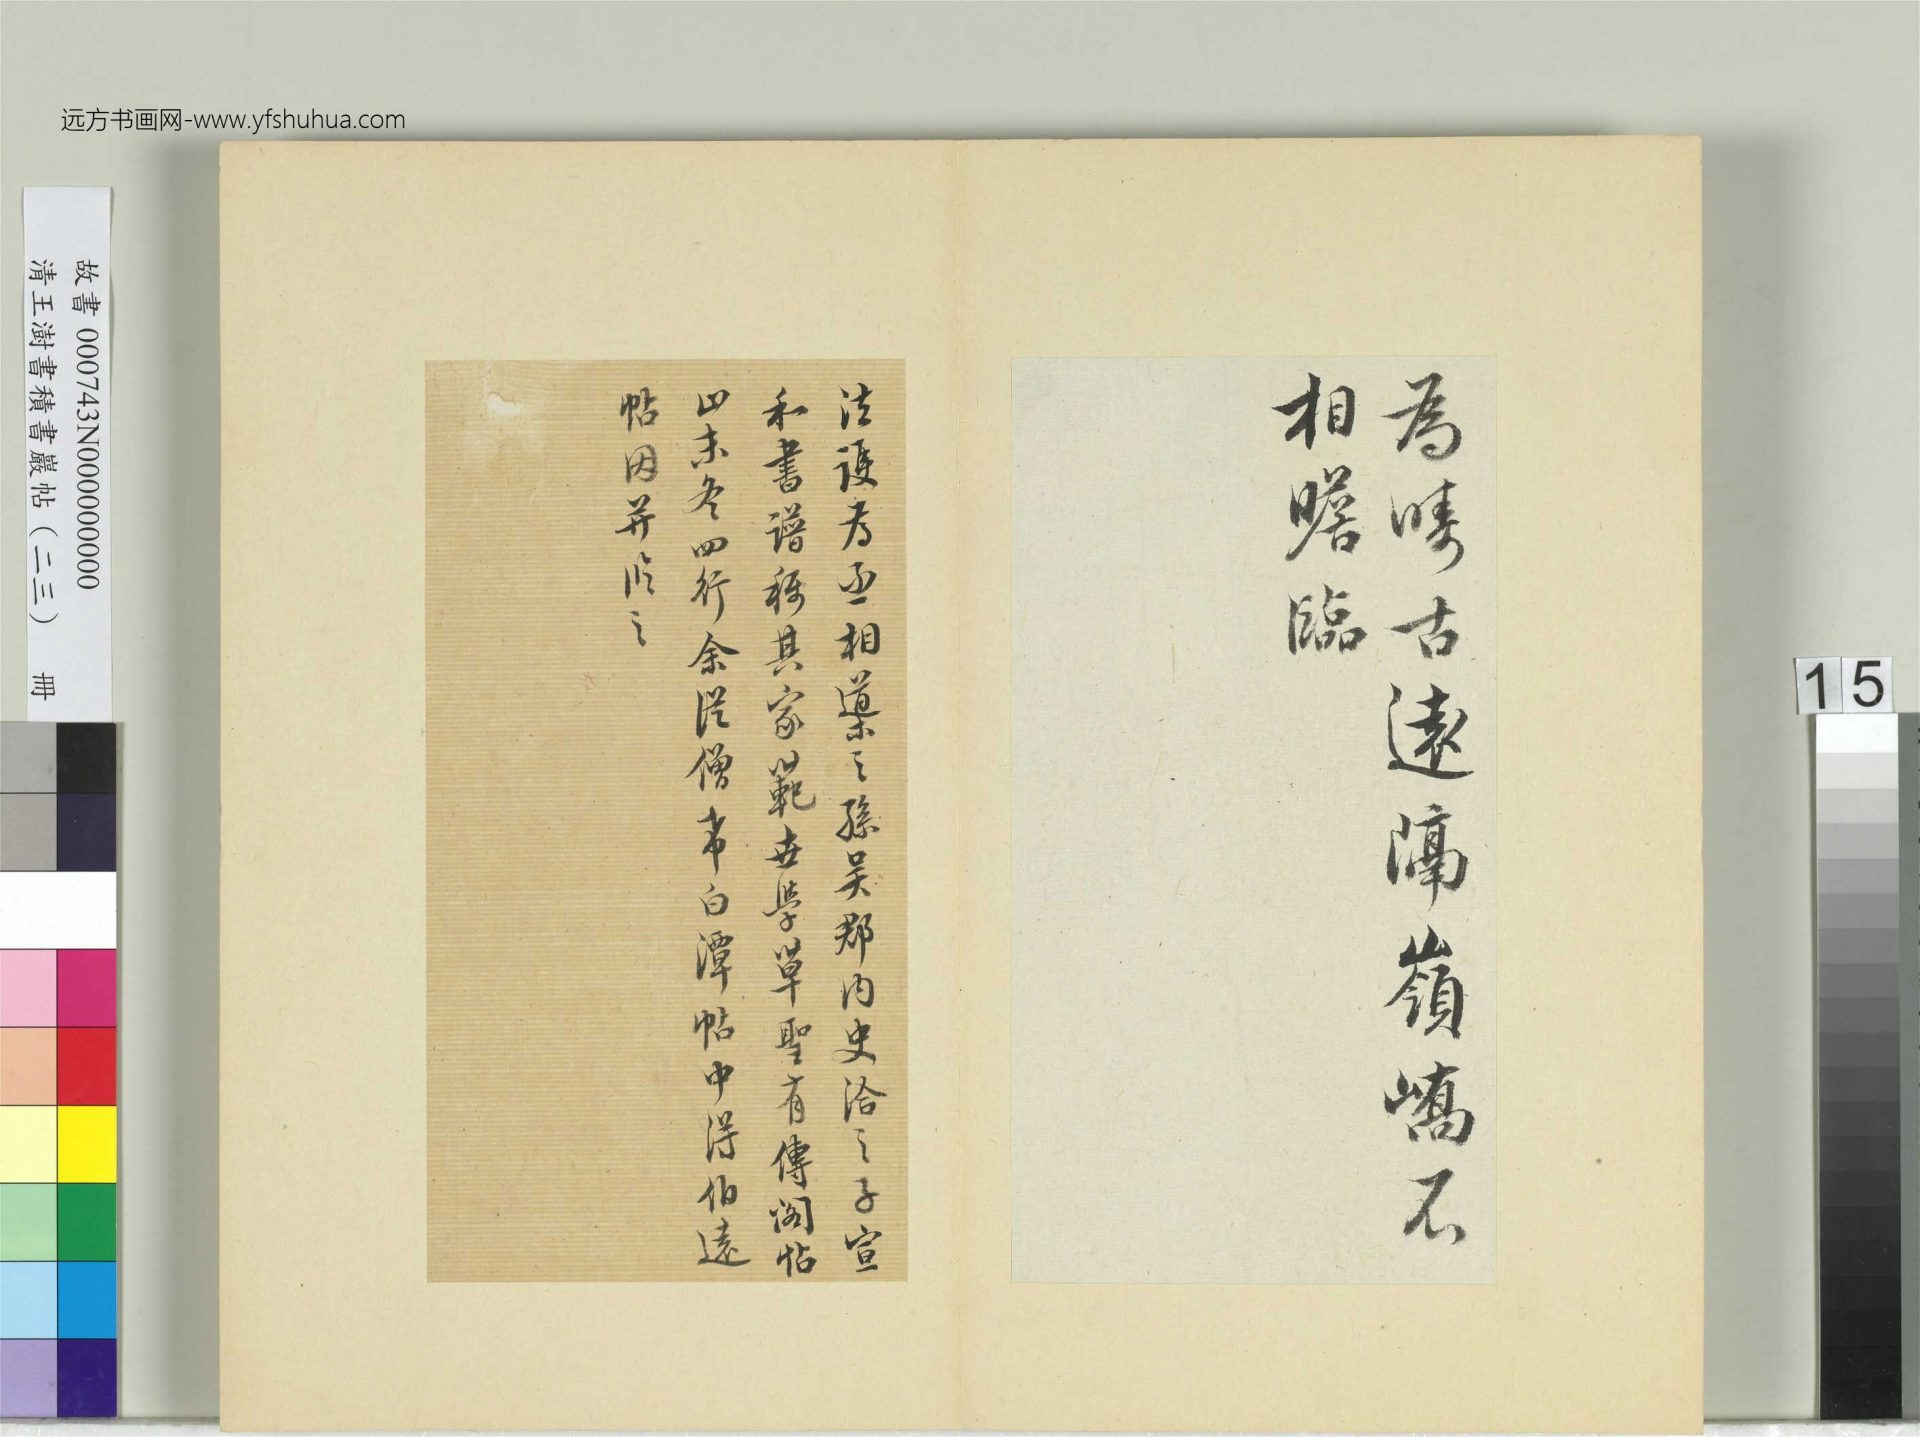 远方书画网-www.yfshuhua.com
故書 000743N000000000
清王澍書積書巖帖（二三） 冊
15
為疇古遠隔嶺嶠不
相瞻臨
法護為丞相導之孫吴郡内史洽之子宣
和書譜稱其家範世學草聖有傳閣帖
止末冬四行余從僧希白潭帖中得伯遠
帖因并臨之